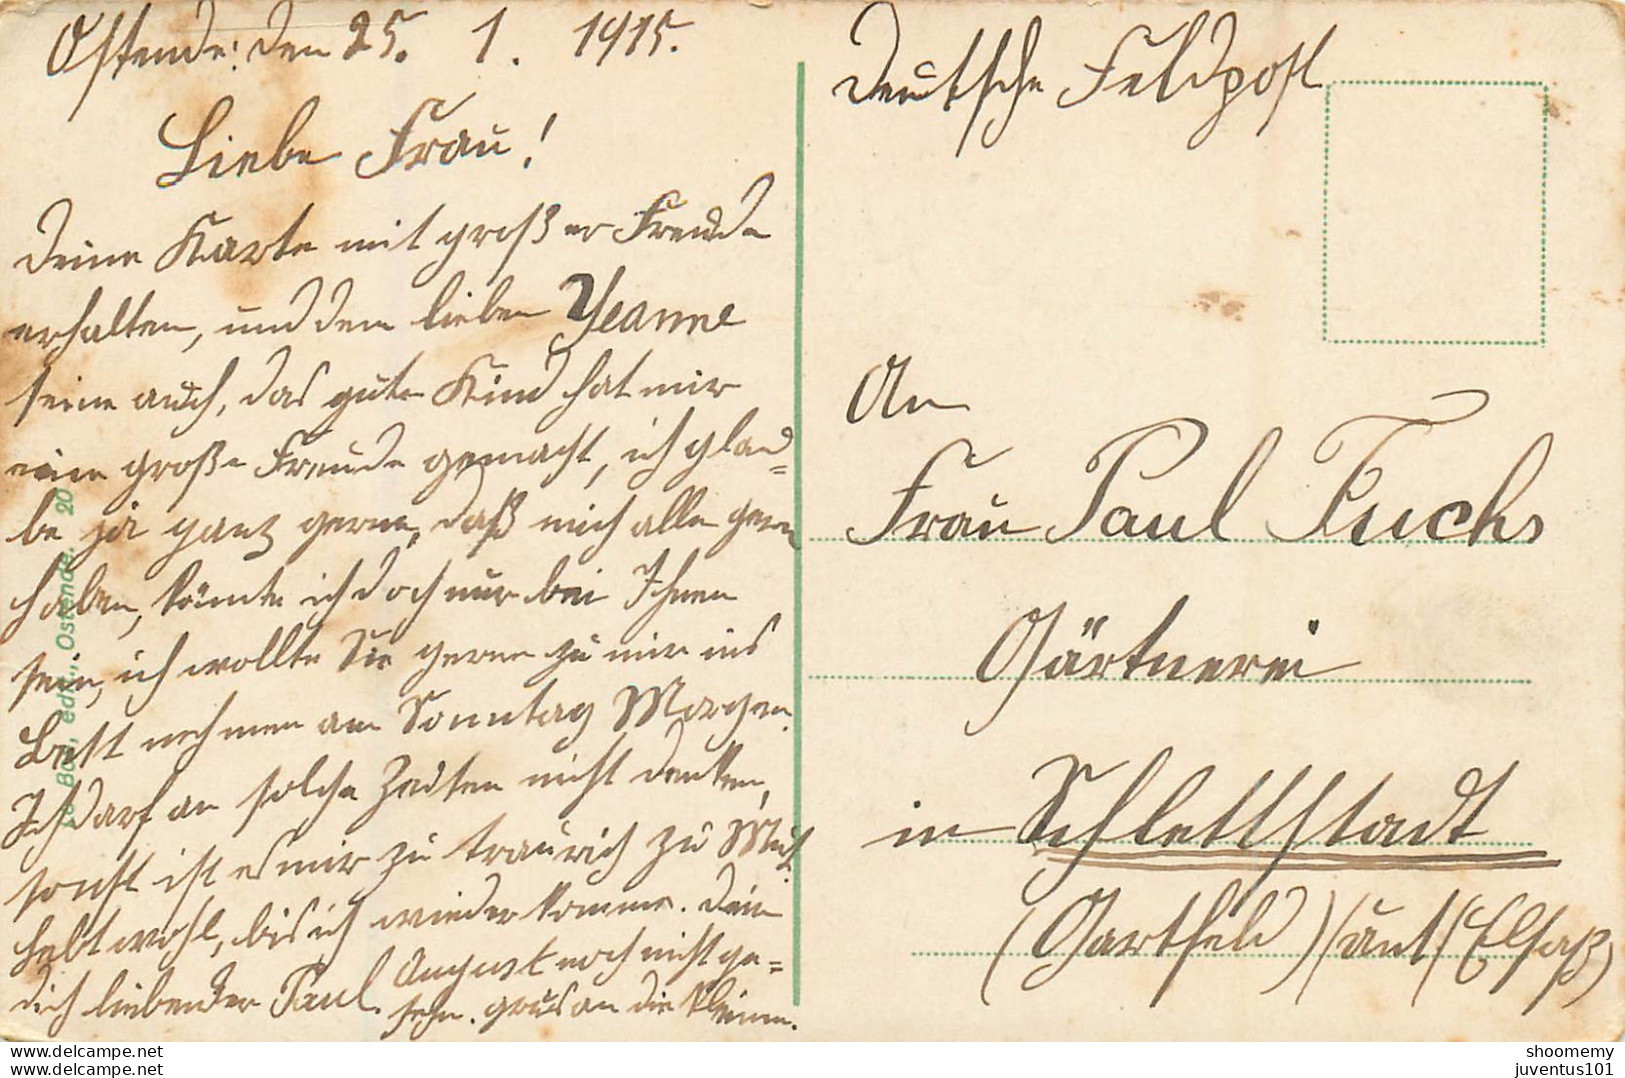 Ostende: den 25. 1. 1915.
Liebe Frau!
Deine Karte mit großer Freude
erhalten, und dem lieben Yeanne
seine auch, das gute Kind hat mir
eine große Freude gemacht, ich glau=
be ja ganz gerne, daß mich alle gern
haben, könnte ich doch nur bei Ihnen
sein, ich wollte Sie gerne zu mir ins
Bett nehmen am Sonntag Morgen.
Ich darf an solche Zeiten nicht denken,
sonst ist es mir zu traurich zu Mut.
Lebt wohl, bis ich wieder komme. Dein
dich liebender Paul.
August noch nicht ge=
sehn. grus an die kleinen.
edit., Ostende. 20
Deutsche Feldpost
An
Frau Paul Fuchs
Gärtnerei
in Schlettstadt
(Gartfeld) (Elsaß)
delcampe.net
shoomemy
juventus101